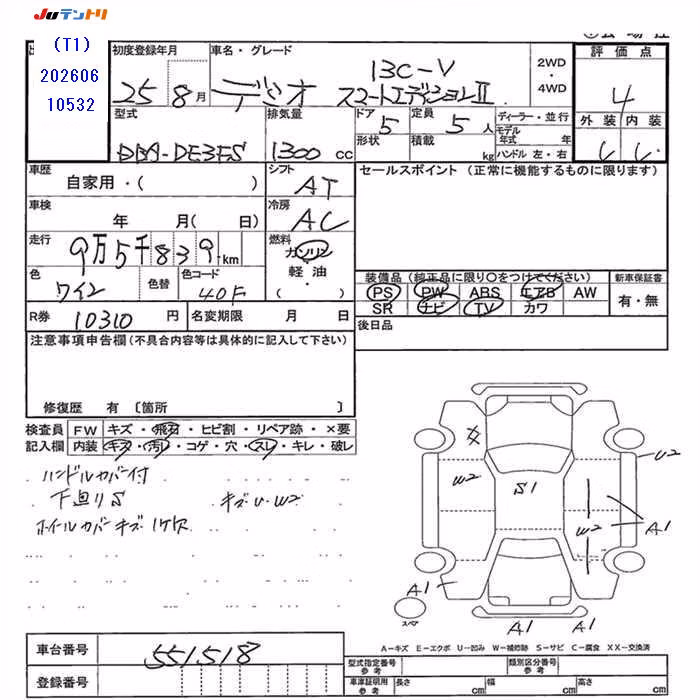 JUテントリ
(T1)
202606
10532
初度登録年月
25 8月
車名・グレード
デミオ
13C-V
スマートエディションⅡ
2WD
・
4WD
評価点
4
外装 内装
型式
DBA-DE3FS
排気量
1300cc
ドア
5
形状
定員
5人
積載
kg
ディーラー・並行
モデル年式 年
ハンドル 左・右
車歴
自家用・( )
シフト
AT
セールスポイント (正常に機能するものに限ります)
車検
年 月( 日)
冷房
AC
走行
9万5千839km
燃料
ガソリン
軽油
( )
色
ワイン
色替
色コード
40F
装備品 (純正品に限り○をつけてください)
PS PW ABS エアB AW
SR ナビ TV カワ
新車保証書
有・無
R券 10310円
名変期限 月 日
後日品
注意事項申告欄(不具合内容等は具体的に記入して下さい)
修復歴 有 〔箇所 〕
検査員 FW キズ・飛石・ヒビ割・リペア跡・×要
記入欄 内装 キズ・汚れ・コゲ・穴・スレ・キレ・破レ
ハンドルカバー付
下廻りS キズ・U・W2
ホイルカバーキズ・1ケ欠
U2
W2
S1
W2
A1
A1
スペア
A1
A1
車台番号 551518
登録番号
A-キズ E-エクボ U-凹み W-補修跡 S-サビ C-腐食 XX-交換済
型式指定番号
参考
類別区分番号
参考
車庫証明用
参考
長さ cm 幅 cm 高さ cm